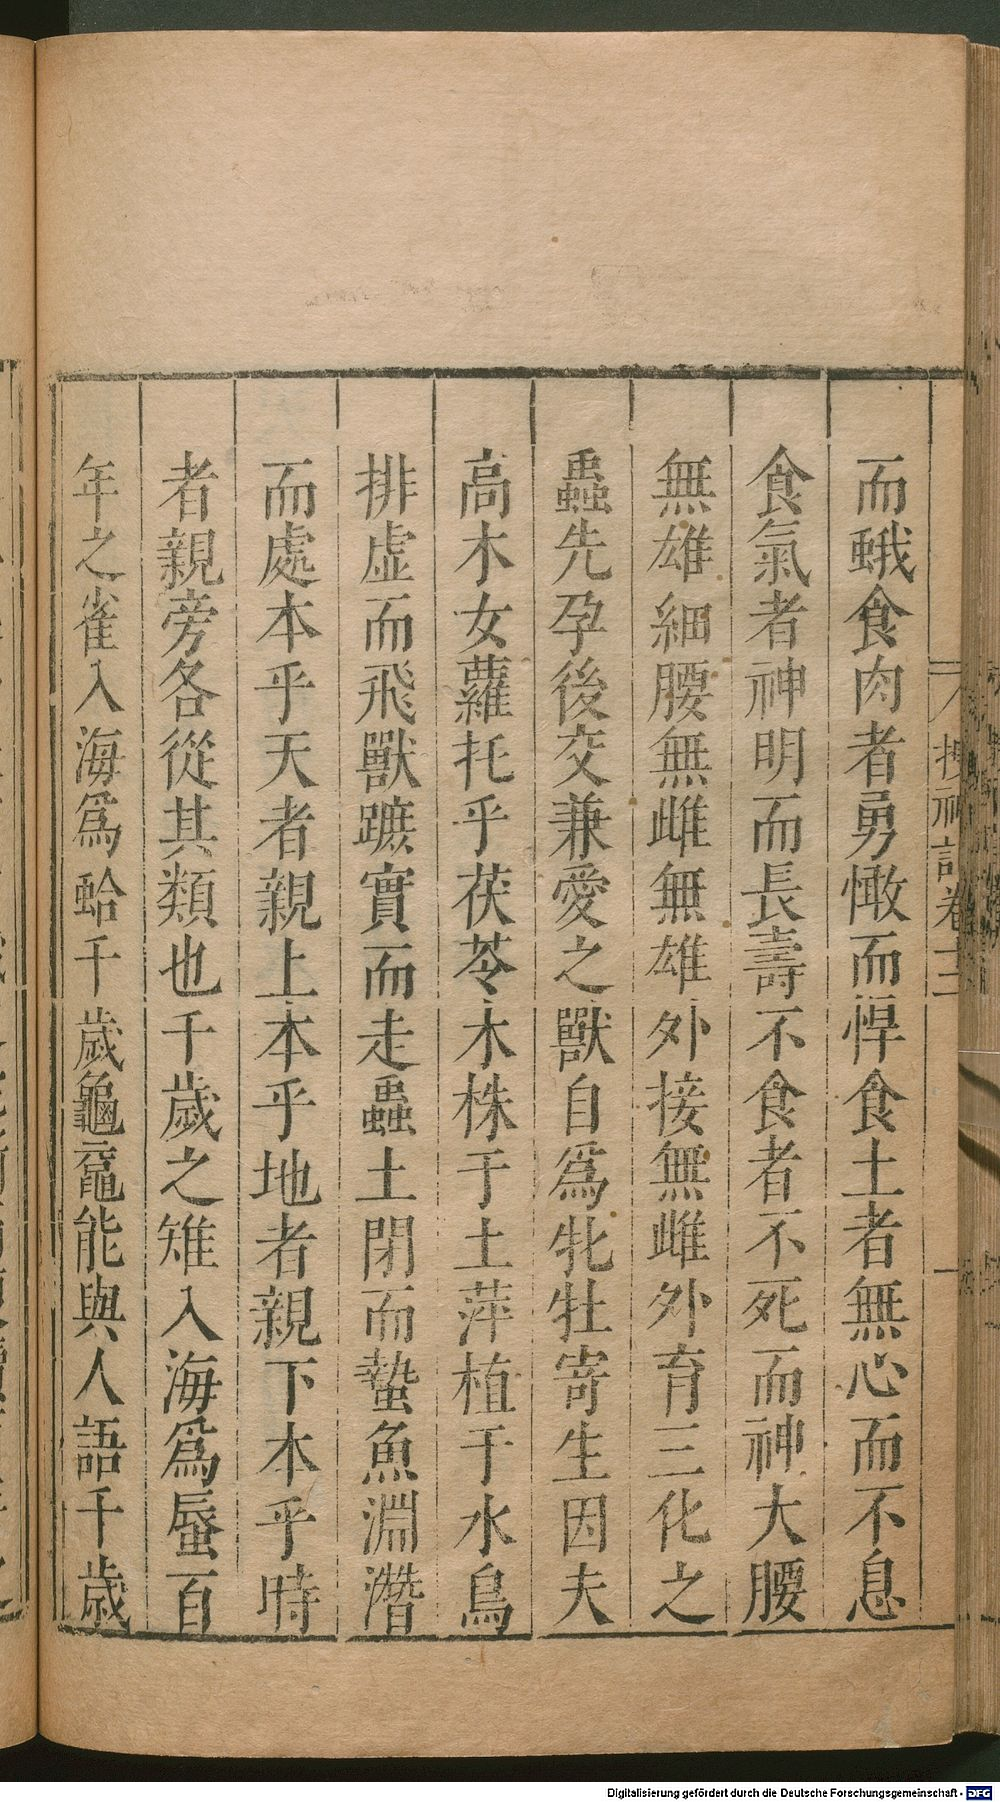 而蛾食肉者勇憿而悍食土者無心而不息
食氣者神明而長壽不食者不死而神大腰
無雄細腰無雌無雄外接無雌外育三化之
蟲先孕後交兼愛之獸自爲牝牡寄生因夫
高木女蘿托乎茯苓木株于土萍植于水鳥
排虛而飛獸蹠實而走蟲土閉而蟄魚淵潛
而處本乎天者親上本乎地者親下本乎時
者親旁各從其類也千歲之雉入海爲蜃百
年之雀入海爲蛤千歲龜黿能與人語千歲
搜神記卷十二
Digitalisierung gefördert durch die Deutsche Forschungsgemeinschaft - DFG